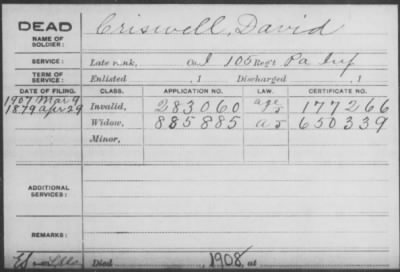 DEAD
NAME OF SOLDIER:
Criswell, David
SERVICE: Late rank, Co. I 105 Reg't Pa Inf
TERM OF SERVICE: Enlisted , 1 Discharged , 1
DATE OF FILING. CLASS. APPLICATION NO. LAW. CERTIFICATE NO.
1907 Mar 9
1879 Apr 29 Invalid, 283060 177266
Widow, 885885 650339
Minor,
ADDITIONAL SERVICES:
REMARKS:
Died 1908, at